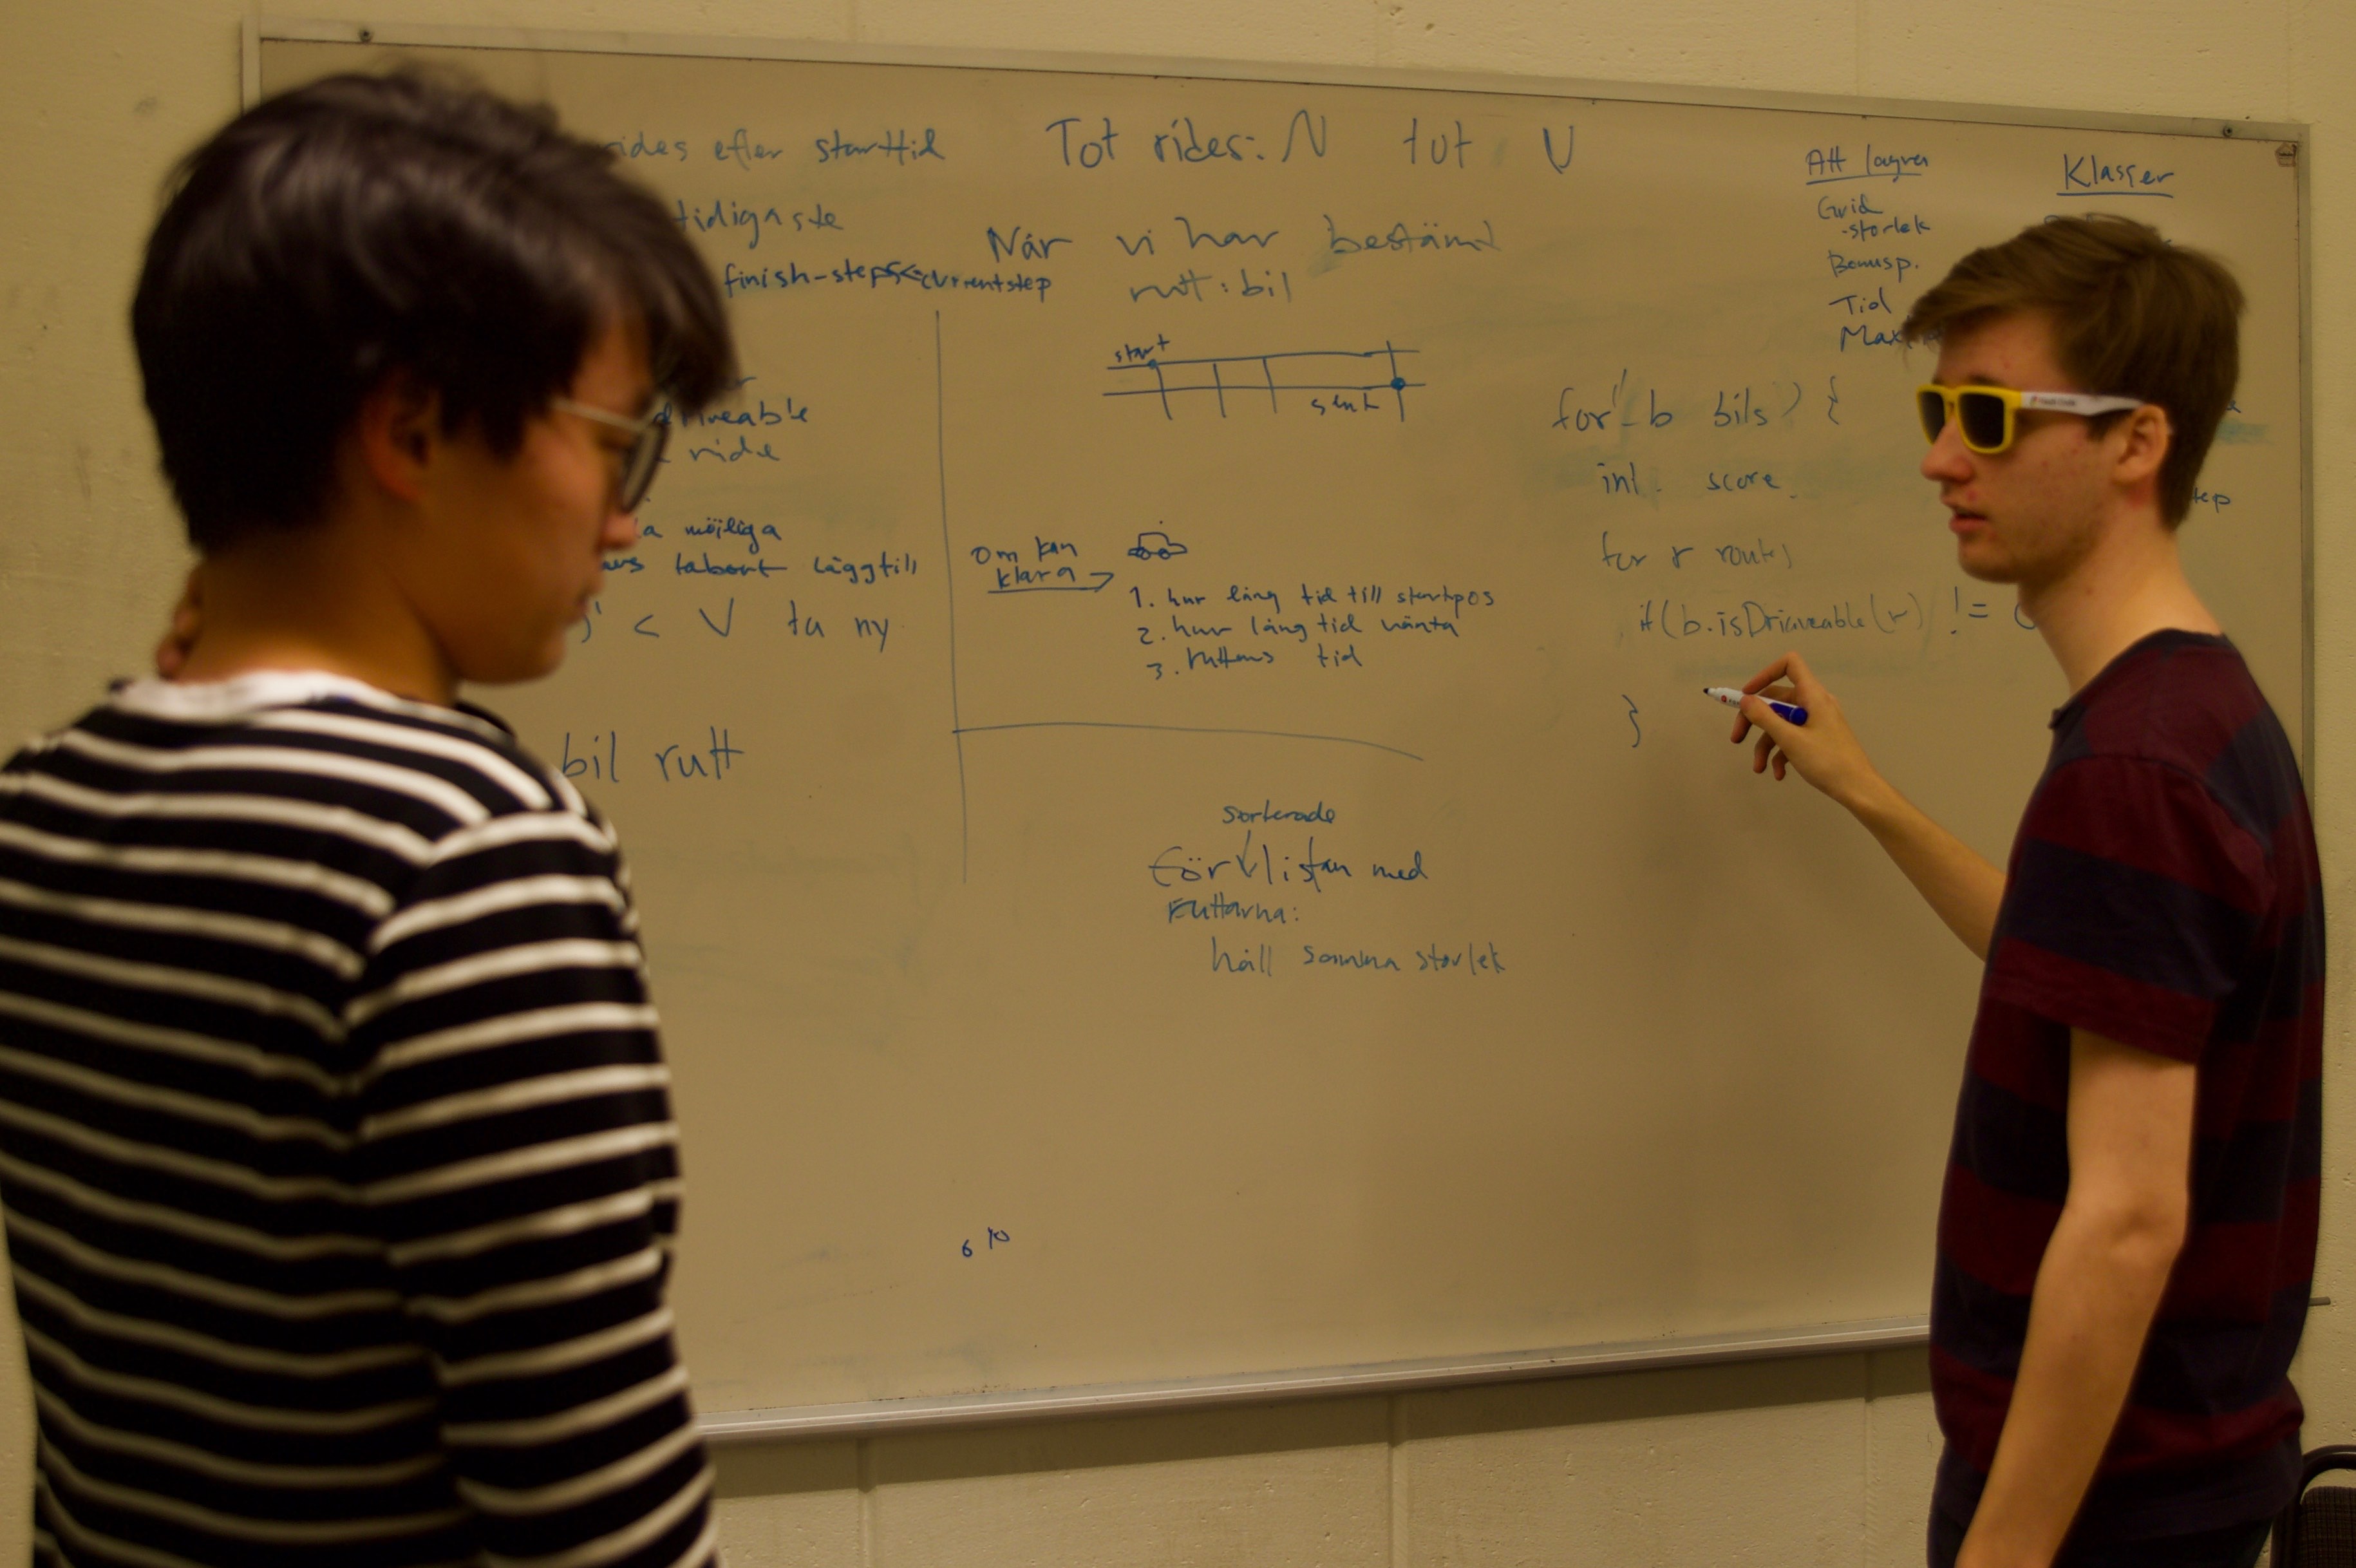 rides efter starttid
tidigaste
finish-steps<currentstep
driveable
ride
möjliga
tabort läggtill
< V ta ny
bil rutt
Tot rides: N tot U
När vi har bestämt
rutt: bil
start
slut
Om kan
klara
1. hur lång tid till startpos
2. hur lång tid vänta
3. ruttens tid
sorterade
för listan med
ruttarna:
håll samma storlek
6 10
Att lagra
Grid
-storlek
Bonusp.
Tid
Max
Klasser
for b bils) {
int score
for r routes
if(b.isDriaveable(r) !=
}
tep